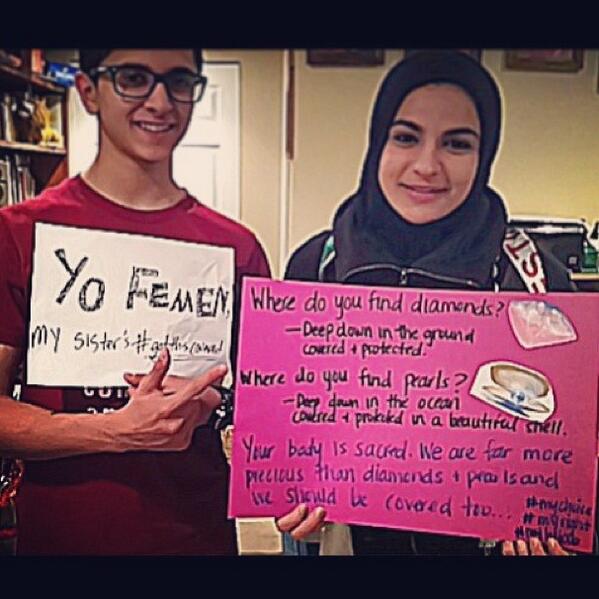 Yo FEMEN,
my sister's #gotthiscovered
Where do you find diamonds?
— Deep down in the ground
covered + protected.
Where do you find pearls?
— Deep down in the ocean
covered + protected in a beautiful shell.
Your body is sacred. We are far more
precious than diamonds + pearls and
we should be covered too...
#mychoice
#myright